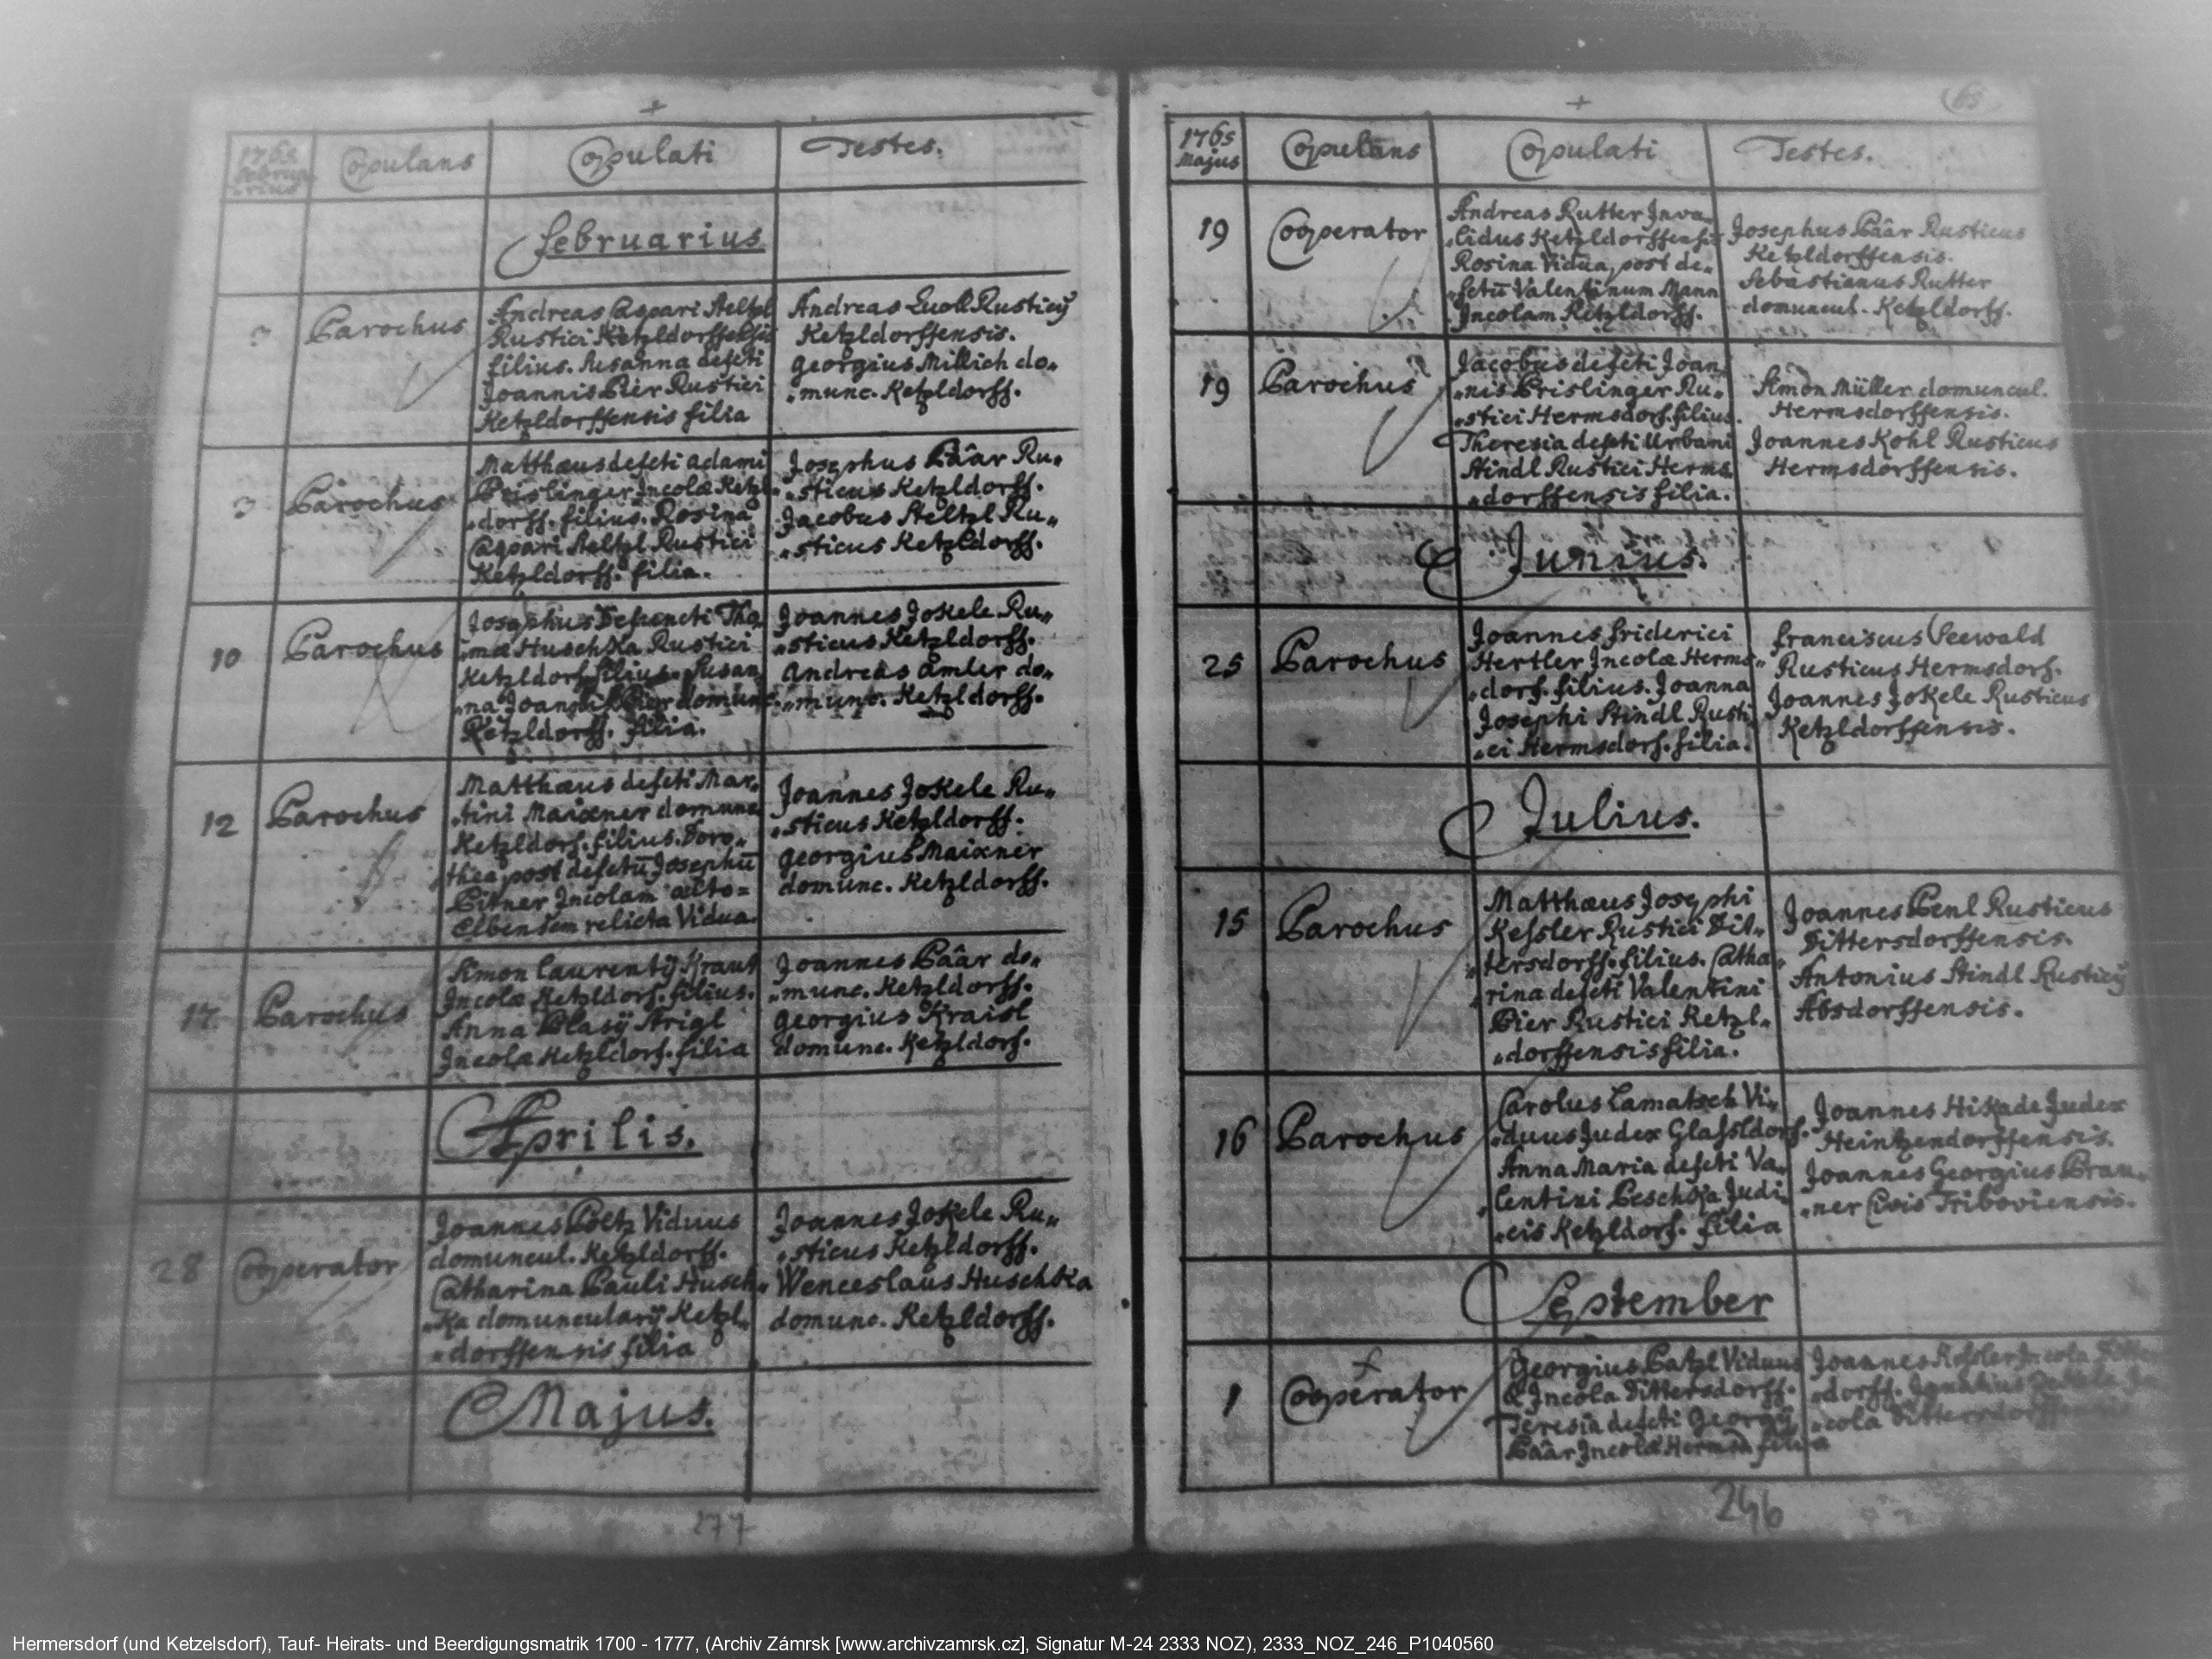 +
1765
Februa,,
,,rius
Copulans
Copulati
Testes.
Februarius
3
Parochus
Andreas Caspari Steltzl
Rustici Ketzldorffensis
filius. Susanna defcti
Joannis Pier Rustici
Ketzldorffensis filia
Andreas Quoll Rusticy
Ketzldorffensis.
Georgius Millich do,,
,,munc. Ketzldorff.
3
Parochus
Matthæus defcti Adami
Prislinger Incolæ Ketzl,,
,,dorff. filius. Rosina
Caspari Steltzl Rustici
Ketzldorff. filia.
Josephus Päär Ru,,
,,sticus Ketzldorff.
Jacobus Steltzl Ru,,
,,sticus Ketzldorff.
10
Parochus
Josephus Defuncti Tho,,
,,mæ Huschka Rustici
Ketzldorf. filius. Susan,,
,,na Joannis Pier domunc.
Ketzldorff. filia.
Joannes Jokele Ru,,
,,sticus Ketzldorff.
Andreas Amler do,,
,,munc. Ketzldorff.
12
Parochus
Matthæus defcti Mar,,
,,tini Maixner domunc
Ketzldorf. filius. Doro,,
,,thea post defctū Josephū
Pitner Incolam alto=
Elbensem relicta Vidua.
Joannes Jokele Ru,,
,,sticus Ketzldorff.
Georgius Maixner
domunc. Ketzldorff.
17
Parochus
Simon Laurentÿ Kraut
Incolæ Ketzldorf. filius.
Anna Blasÿ Strigl
Incolæ Ketzldorf. filia
Joannes Päär do,,
,,munc. Ketzldorff.
Georgius Kraisl
domunc. Ketzldorf.
Aprilis.
28
Cooperator
Joannes Poltz Viduus
domuncul. Ketzldorff.
Catharina Pauli Husch,,
,,ka domuncularÿ Ketzl,,
,,dorffensis filia
Joannes Jokele Ru,,
,,sticus Ketzldorff.
Wenceslaus Huschka
domunc. Ketzldorff.
Majus.
277
+
65
1765
Majus
Copulans
Copulati
Testes.
19
Cooperator
Andreas Rutter Inva,,
,,lidus Ketzldorffensis
Rosina Vidua post de,,
,,fctū Valentinum Mann
Incolam Ketzldorff.
Josephus Päär Rusticus
Ketzldorffensis.
Sebastianus Rutter
domuncul. Ketzldorff.
19
Parochus
Jacobus defcti Joan,,
,,nis Prislinger Ru,,
,,stici Hermsdorf. filius.
Theresia defcti Urbani
Stindl Rustici Herms,,
,,dorffensis filia.
Simon Müller domuncul.
Hermsdorffensis.
Joannes Kohl Rusticus
Hermsdorffensis.
Junius.
25
Parochus
Joannes Friderici
Hertler Incolæ Herms,,
,,dorf. filius. Joanna
Josephi Stindl Rusti,,
,,ci Hermsdorf. filia.
Franciscus Seewald
Rusticus Hermsdorf.
Joannes Jokele Rusticus
Ketzldorffensis.
Julius.
15
Parochus
Matthæus Josephi
Kessler Rustici Dit,,
,,tersdorff. filius. Catha,,
,,rina defcti Valentini
Pier Rustici Ketzl,,
,,dorffensis filia.
Joannes Penl Rusticus
Dittersdorffensis.
Antonius Stindl Rusticy
Absdorffensis.
16
Parochus
Carolus Lamatsch Vi,,
,,duus Judex Glassldorf.
Anna Maria defcti Va,,
,,lentini Peschka Judi,,
,,cis Ketzldorf. filia
Joannes Hikade Judex
Heintzendorffensis.
Joannes Georgius Bran,,
,,ner Civis Triboviensis.
September
1
Cooperator
Georgius Patzl Viduus
& Incola Dittersdorff.
Teresia defcti Georgÿ
Päär Incolæ Hermsd. filia
Joannes Kessler Incola
,,dorff. Ignatius
,,cola Dittersdorffensis
246
Hermersdorf (und Ketzelsdorf), Tauf- Heirats- und Beerdigungsmatrik 1700 - 1777, (Archiv Zámrsk [www.archivzamrsk.cz], Signatur M-24 2333 NOZ), 2333_NOZ_246_P1040560